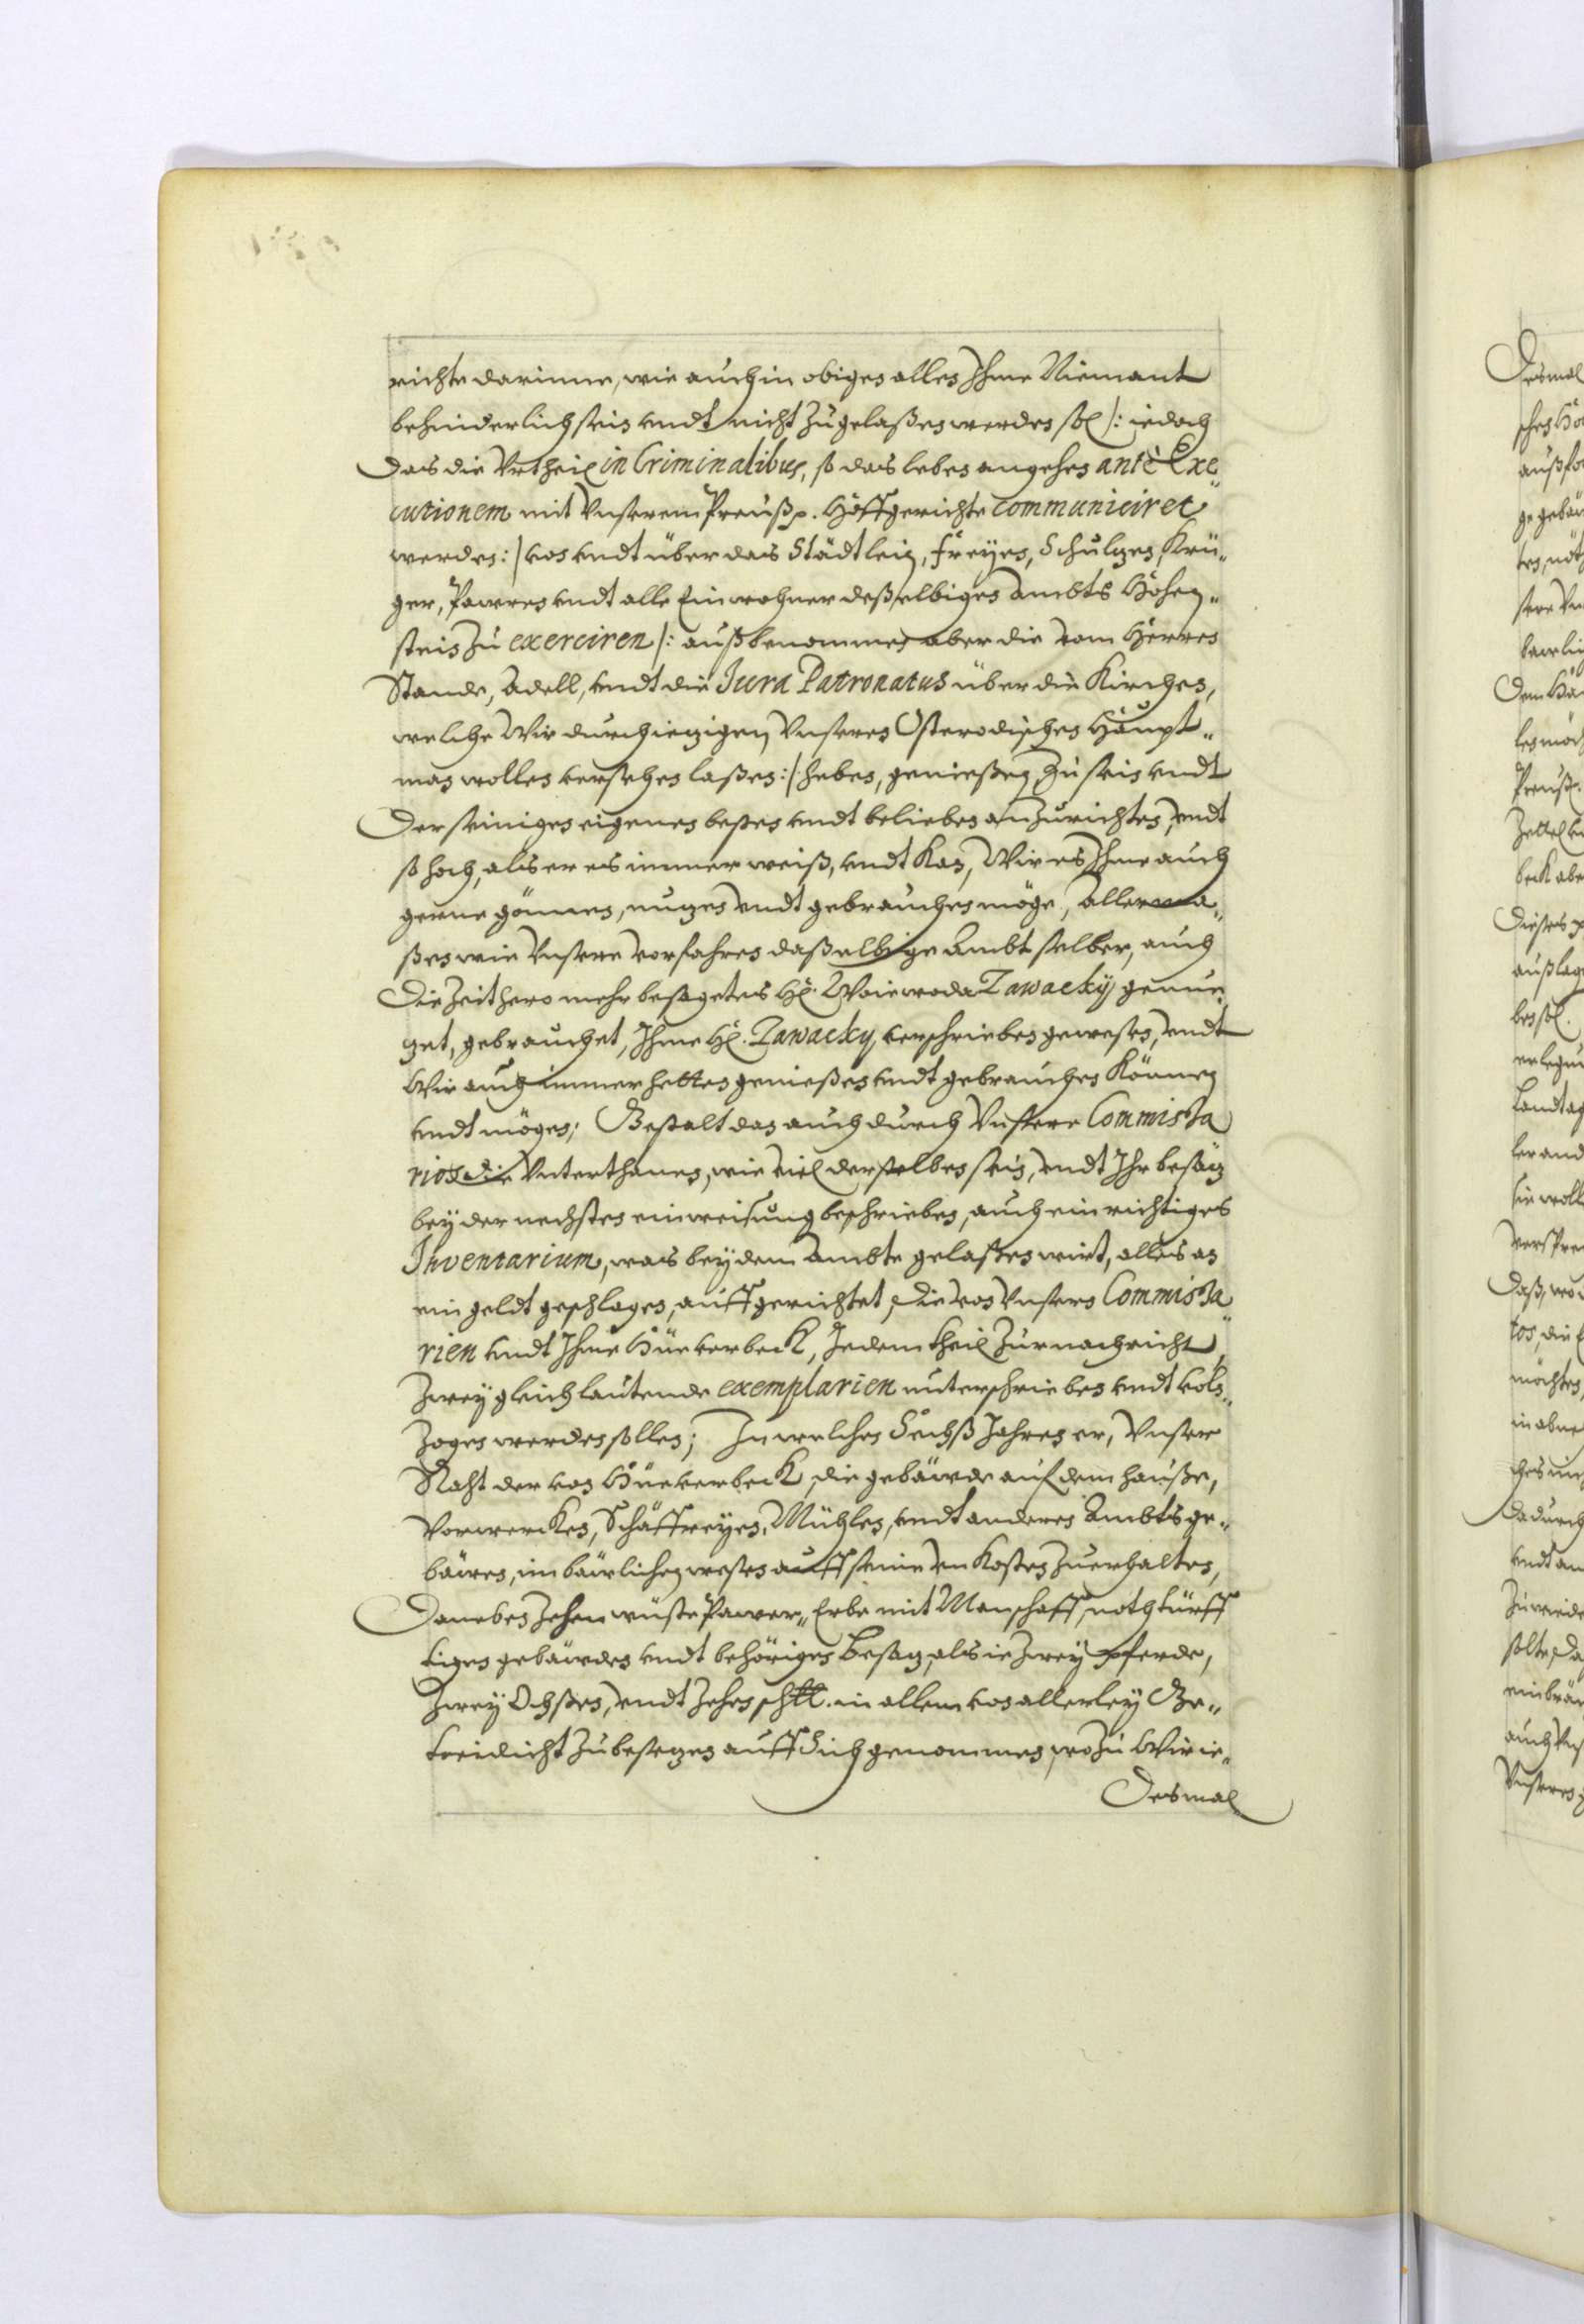 richte darinne, wie auch in obigen allen Ihme Niemant
behinderlich sein vndt nicht zugelaßen werden sol /: iedoch
das die Vrtheil in Criminalibus, so das leben angehen ante Exe„
cutionem mit Vnserem Preußs. Hoffgerichte communiciret
werden :/ von vndt über das Städtlein, Freyen, Schulzen, Krü„
ger, Pawren vndt alle Einwohner deßelbigen Ambts Hohen„
stein zu exerciren /: außbenommen aber die vom Herren
Stande, Adell, vndt die Jura Patronatus über die Kirchen,
welche Wir durch iezigen Vnseren Osterodischen Haupt„
man wollen versehen laßen :/ heben, genießen, zu sein vndt
der seinigen eigenen besten vndt belieben anzurichten, vndt
so hoch, als er es immer weiß, vndt kan, Wir es Ihme auch
gerne gönnen, nuzen vndt gebrauchen möge, allerma„
ßen wie Vnsere Vorfahren daßelbige Ambt selber, auch
die Zeithero mehr besageter H. Woiewoda Zawacky genu„
zet, gebrauchet, Ihme H. Zawacky verschrieben gewesen, vndt
Wir auch immer hetten genießen vndt gebrauchen können
vndt mögen; Gestalt dan auch durch Vnsere Commissa
rios die Vnterthanen, wie viel derselben sein, vndt Ihr besaz
bey der nechsten einweisung beschrieben, auch ein richtiges
Inventarium, was bey dem Ambte gelaßen wirt, alles an
ein geldt geschlagen, auffgerichtet, die von Vnsern Commissa„
rien vndt Ihme Hüeverbeck, Jedem theil zur nachricht,
Zwey gleichlautende exemplarien unterschrieben vndt vol„
zogen werden sollen; In welchen Sechß Jahren er, Vnser
Raht der von Hüeverbeck, die gebäwde auf dem hauße,
Vorwercken, Schäffreyen, Mühlen, vndt anderen Ambts ge„
bäwen, im bäwlichen wesen auff seine vnkosten zuerhalten,
Daneben Zehen wüste Pawer„ Erbe mit Manschafft, nothtürff
tigen gebäwden vndt behörigen Besaz, als ie zwey Pferde,
Zwey Ochßen, vndt zehen schll. in allem von allerley Ge„
treidicht zubesezen auff Sich genommen, wozu Wir ie„
desmal